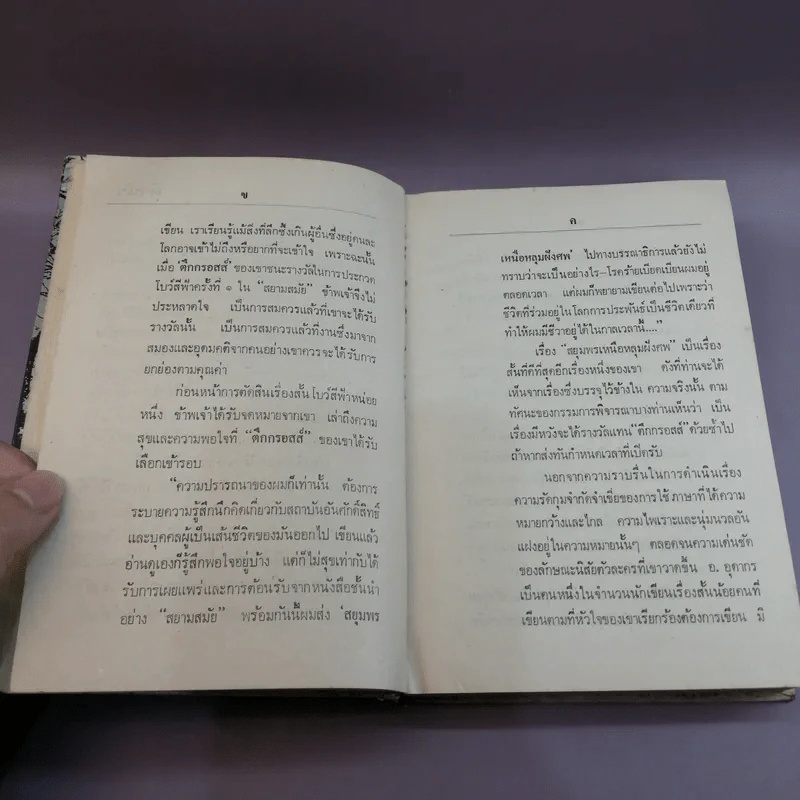 ข
เขียน เราเรียนรู้แม้สิ่งที่ลึกซึ้งเกินผู้อื่นซึ่งอยู่คนละ
โลกอาจเข้าไม่ถึงหรือยากที่จะเข้าใจ เพราะฉะนั้น
เมื่อ ‘ตึกกรอสส์’ ของเขาชนะรางวัลในการประกวด
โบว์สีฟ้าครั้งที่ ๑ ใน “สยามสมัย” ข้าพเจ้าจึงไม่
ประหลาดใจ เป็นการสมควรแล้วที่เขาจะได้รับ
รางวัลนั้น เป็นการสมควรแล้วที่งานซึ่งมาจาก
สมองและอุดมคติจากคนอย่างเขาควรจะได้รับการ
ยกย่องตามคุณค่า
ก่อนหน้าการตัดสินเรื่องสั้นโบว์สีฟ้าหน่อย
หนึ่ง ข้าพเจ้าได้รับจดหมายจากเขา เล่าถึงความ
สุขและความพอใจที่ “ตึกกรอสส์” ของเขาได้รับ
เลือกเข้ารอบ
“ความปรารถนาของผมก็เท่านั้น ต้องการ
ระบายความรู้สึกนึกคิดเกี่ยวกับสถาบันอันศักดิ์สิทธิ์
และบุคคลผู้เป็นเส้นชีวิตของมันออกไป เขียนแล้ว
อ่านดูเองก็รู้สึกพอใจอยู่บ้าง แต่ก็ไม่สุขเท่ากับได้
รับการเผยแพร่และการต้อนรับจากหนังสือชั้นนำ
อย่าง “สยามสมัย” พร้อมกันนี้ผมส่ง ‘สยุมพร
ค
เหนือหลุมฝังศพ’ ไปทางบรรณาธิการแล้วยังไม่
ทราบว่าจะเป็นอย่างไร—โรคร้ายเบียดเบียนผมอยู่
ตลอดเวลา แต่ผมก็พยายามเขียนต่อไปเพราะว่า
ชีวิตที่ร่วมอยู่ในโลกการประพันธ์เป็นชีวิตเดียวที่
ทำให้ผมมีชีวาอยู่ได้ในกาลเวลานี้....”
เรื่อง “สยุมพรเหนือหลุมฝังศพ” เป็นเรื่อง
สั้นที่ดีที่สุดอีกเรื่องหนึ่งของเขา ดังที่ท่านจะได้
เห็นจากเรื่องซึ่งบรรจุไว้ข้างใน ความจริงนั้น ตาม
ทัศนะของกรรมการพิจารณาบางท่านเห็นว่า เป็น
เรื่องมีหวังจะได้รางวัลแทน “ตึกกรอสส์” ด้วยซ้ำไป
ถ้าหากส่งทันกำหนดเวลาที่เปิดรับ
นอกจากความราบรื่นในการดำเนินเรื่อง
ความรัดกุมจำกัดจำเขี่ยของการใช้ ภาษาที่ได้ความ
หมายกว้างและไกล ความไพเราะและนุ่มนวลอัน
แฝงอยู่ในความหมายนั้นๆ ตลอดจนความเด่นชัด
ของลักษณะนิสัยตัวละครที่เขาวาดขึ้น อ. อุดากร
เป็นคนหนึ่งในจำนวนนักเขียนเรื่องสั้นน้อยคนที่
เขียนตามที่หัวใจของเขาเรียกร้องต้องการเขียน มิ